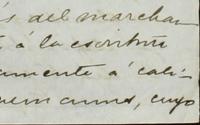 s del marchan
é á la escritu
amente á cali-
uem annos, cuyo